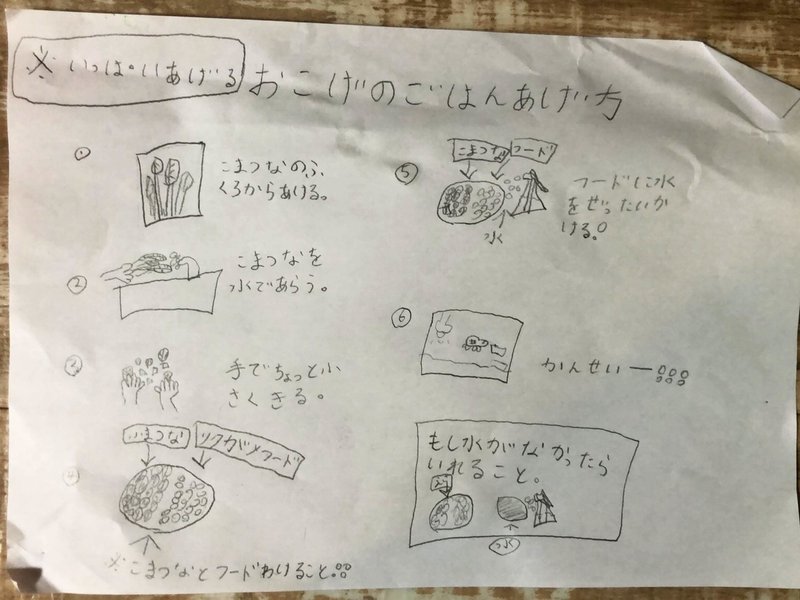 ※いっぱいあげる
おこげのごはんあげ方
①
こまつなのふ
くろからあける。
②
こまつなを
水であらう。
③
手でちょっと小
さくきる。
④
こまつな
リクガメフード
※こまつなとフードわけること。
⑤
こまつな
フード
水
フードに水
をぜったいか
ける。
⑥
かんせいー
もし水がなかったら
いれること。
水